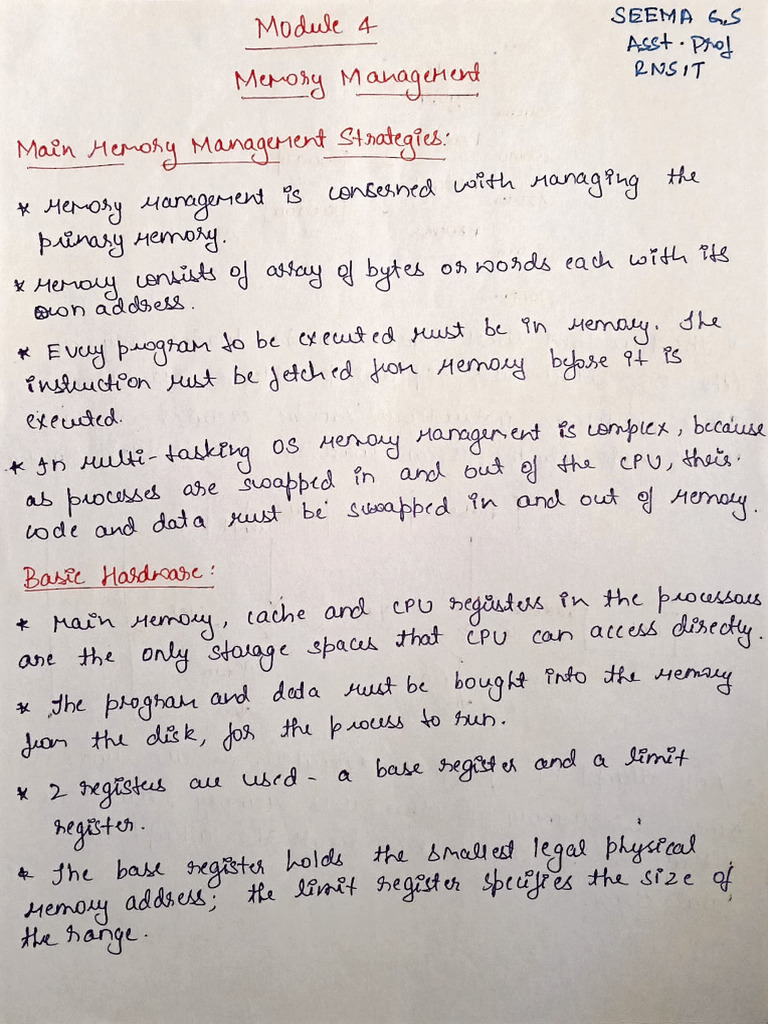 Module 4
SEEMA G.S
Asst. Prof
RNSIT
Memory Management
Main Memory Management Strategies:
* Memory Management is conserned with managing the
primary memory.
* Memory consists of array of bytes or words each with its
own address.
* Every program to be executed must be in memory. The
instruction must be fetched from memory before it is
executed.
* In multi-tasking OS memory management is complex, because
as processes are swapped in and out of the CPU, their
code and data must be swapped in and out of memory.
Basic Hardware:
* Main memory, cache and CPU registers in the processors
are the only storage spaces that CPU can access directly.
* The program and data must be bought into the memory
from the disk, for the process to run.
* 2 registers are used - a base register and a limit
register.
* The base register holds the smallest legal physical
memory address; the limit register specifies the size of
the range.